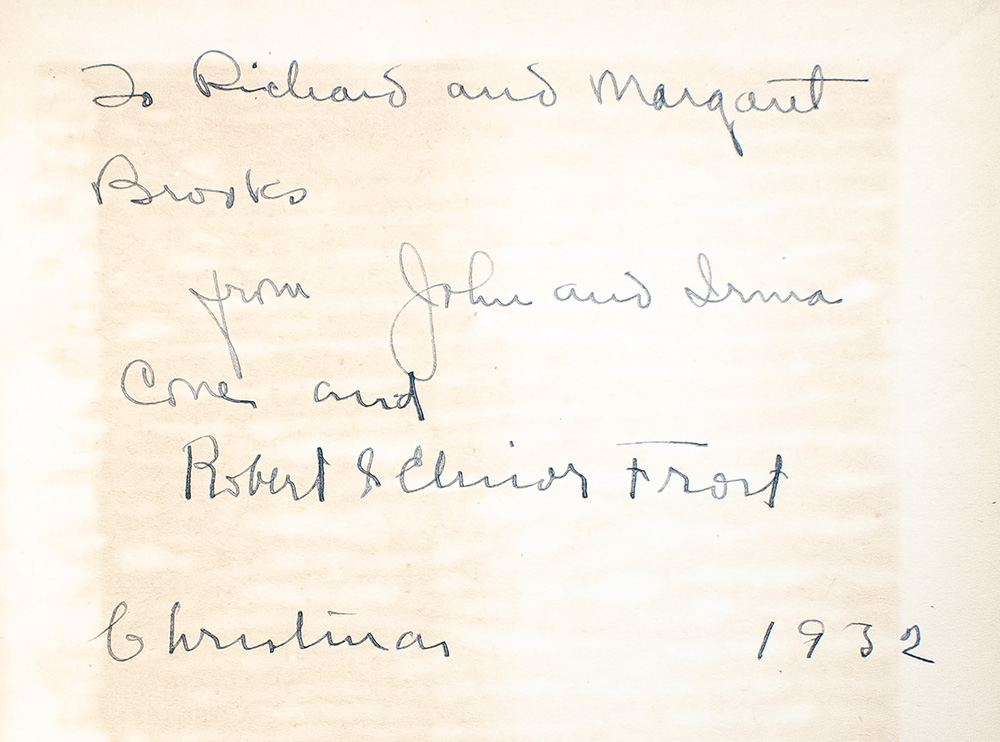 To Richard and Margaret
Brooks
from John and Irma
Cone and
Robert & Elinor Frost
Christmas 1932